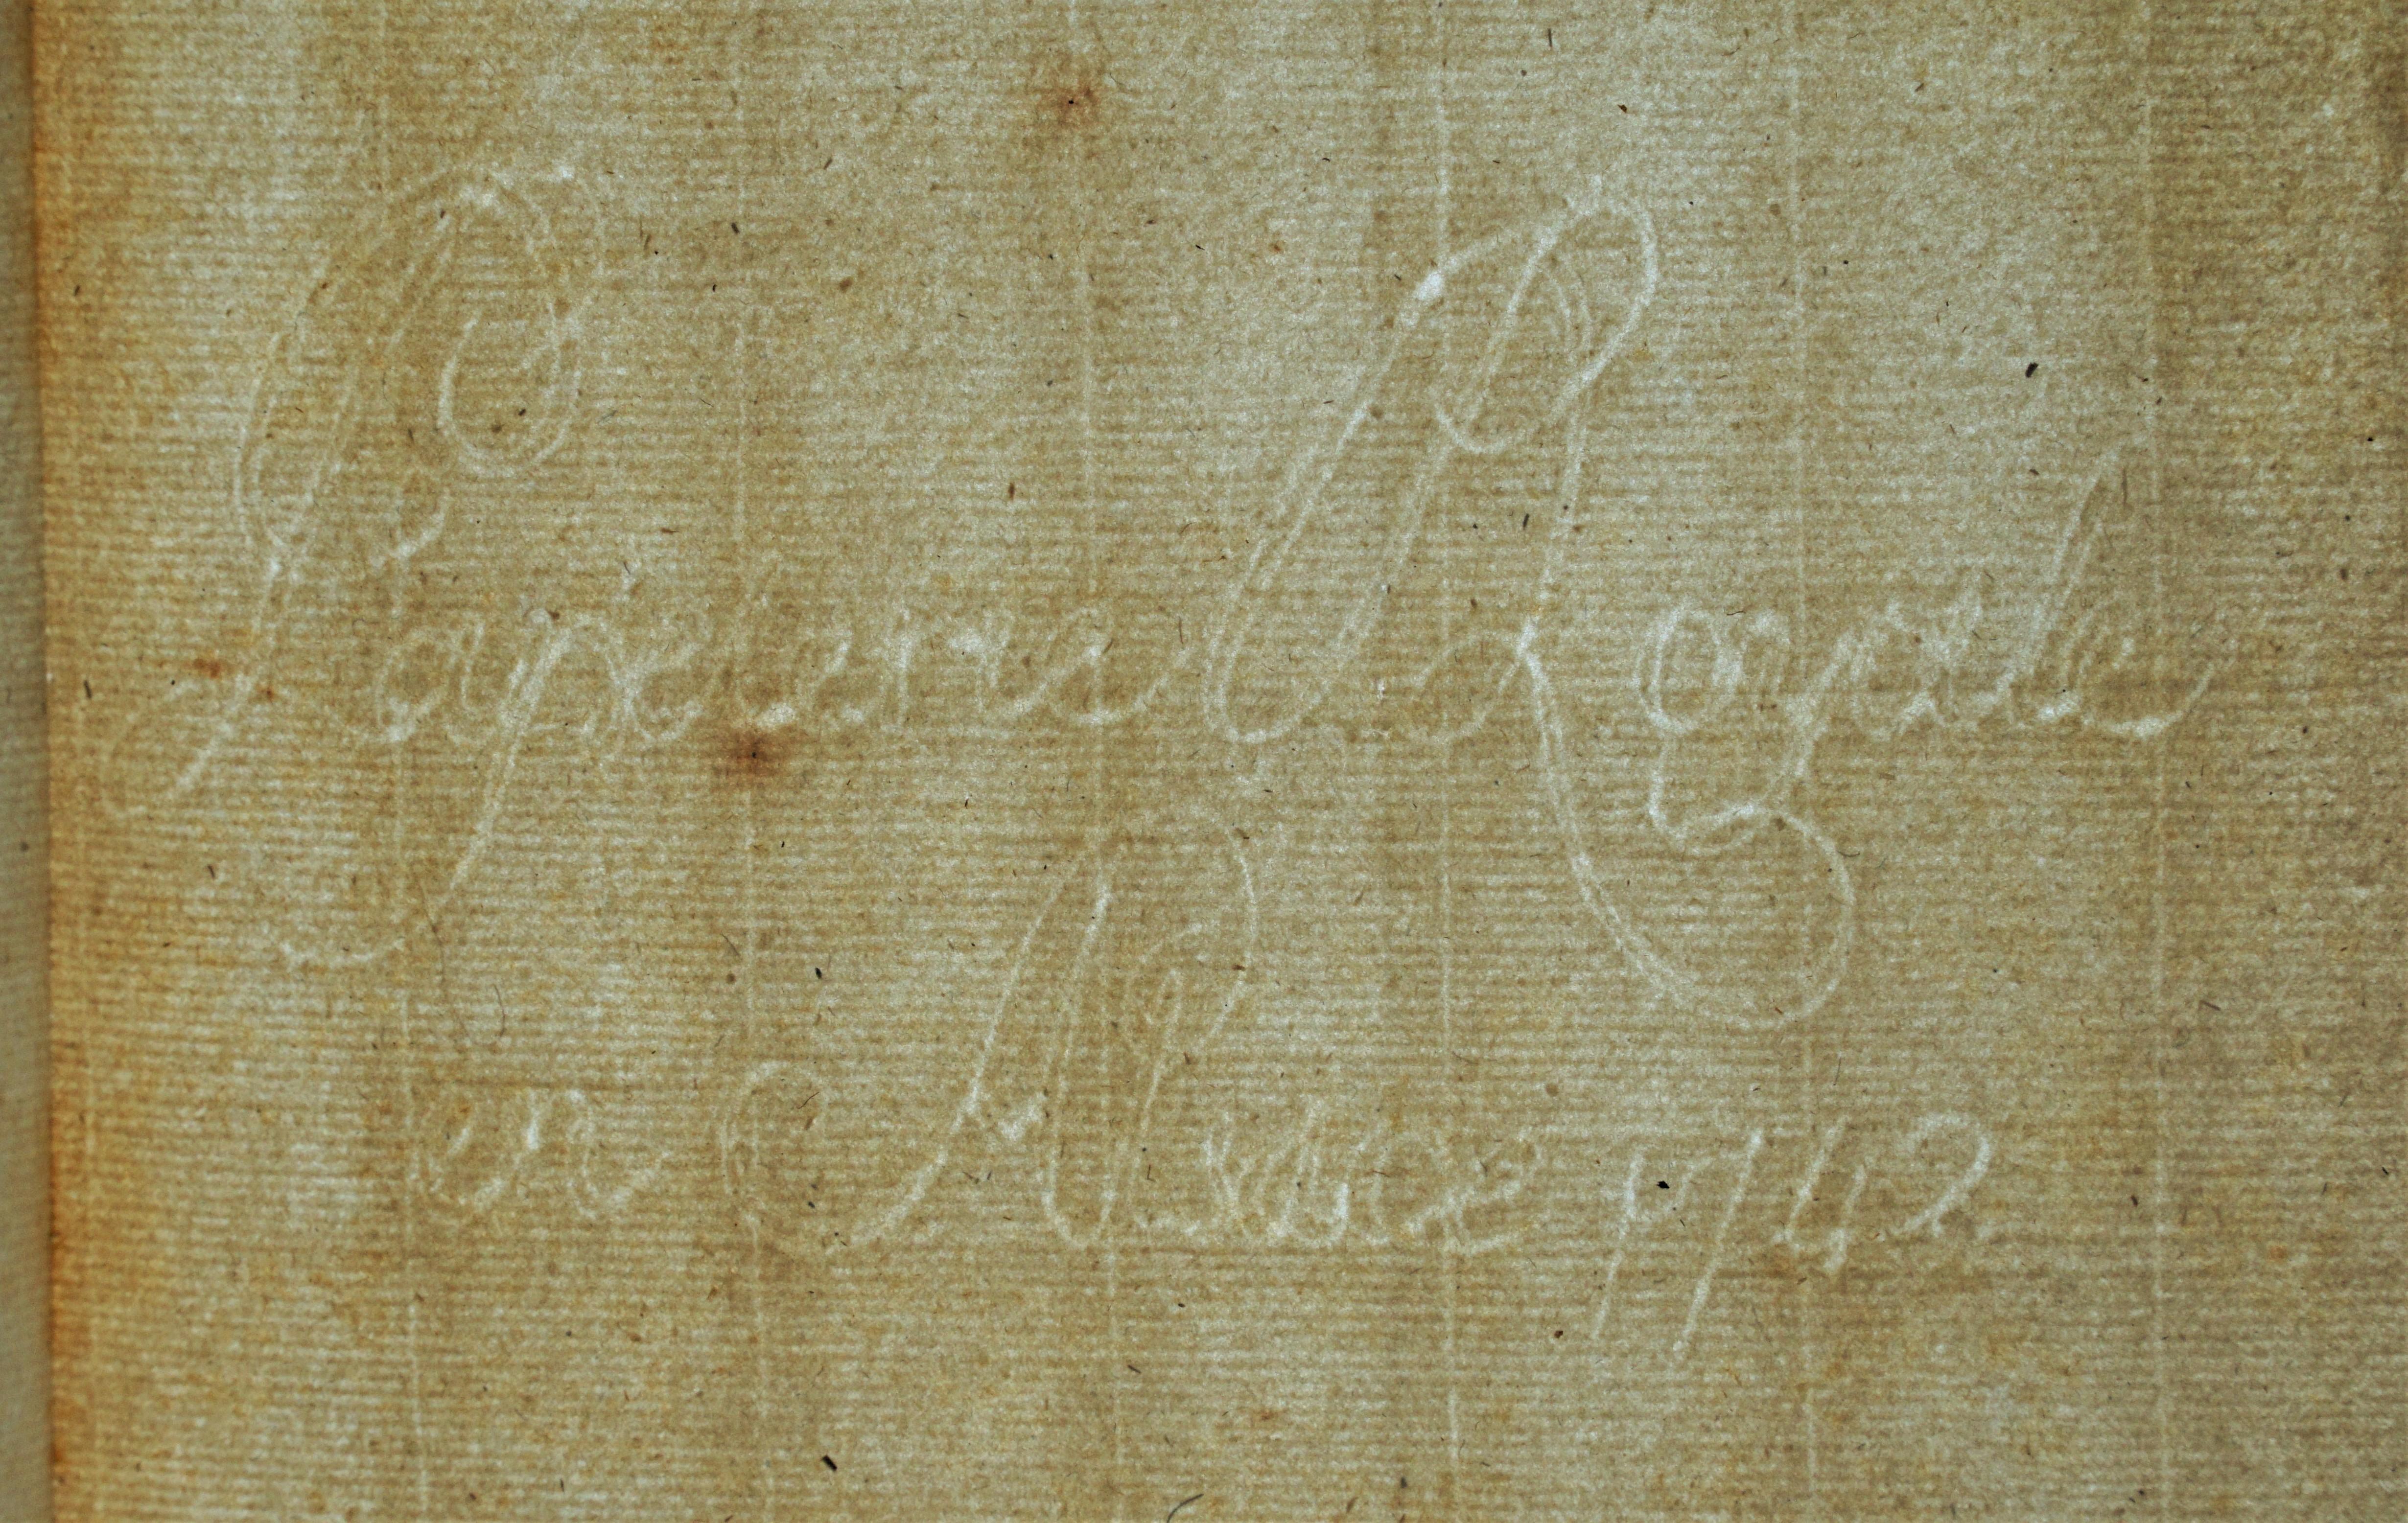 Papeterie Royale
en 1742